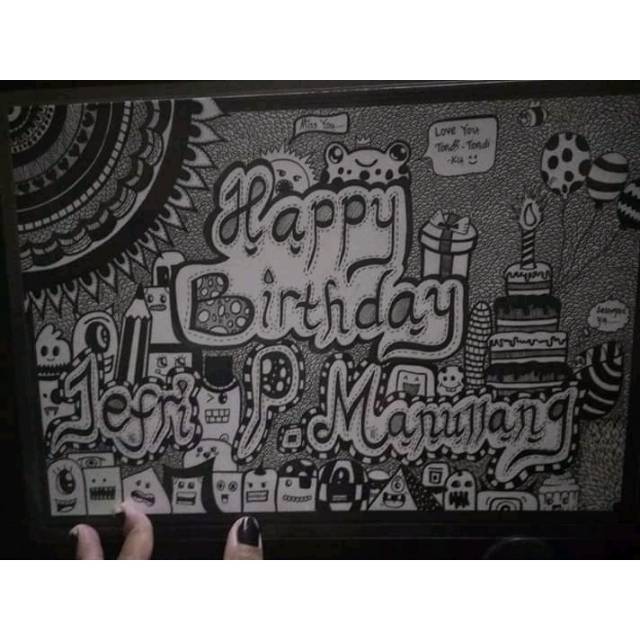 Miss You...
Love You
Tondi-Tondi
-Ku
Happy
Birthday
Jefri P. Manullang